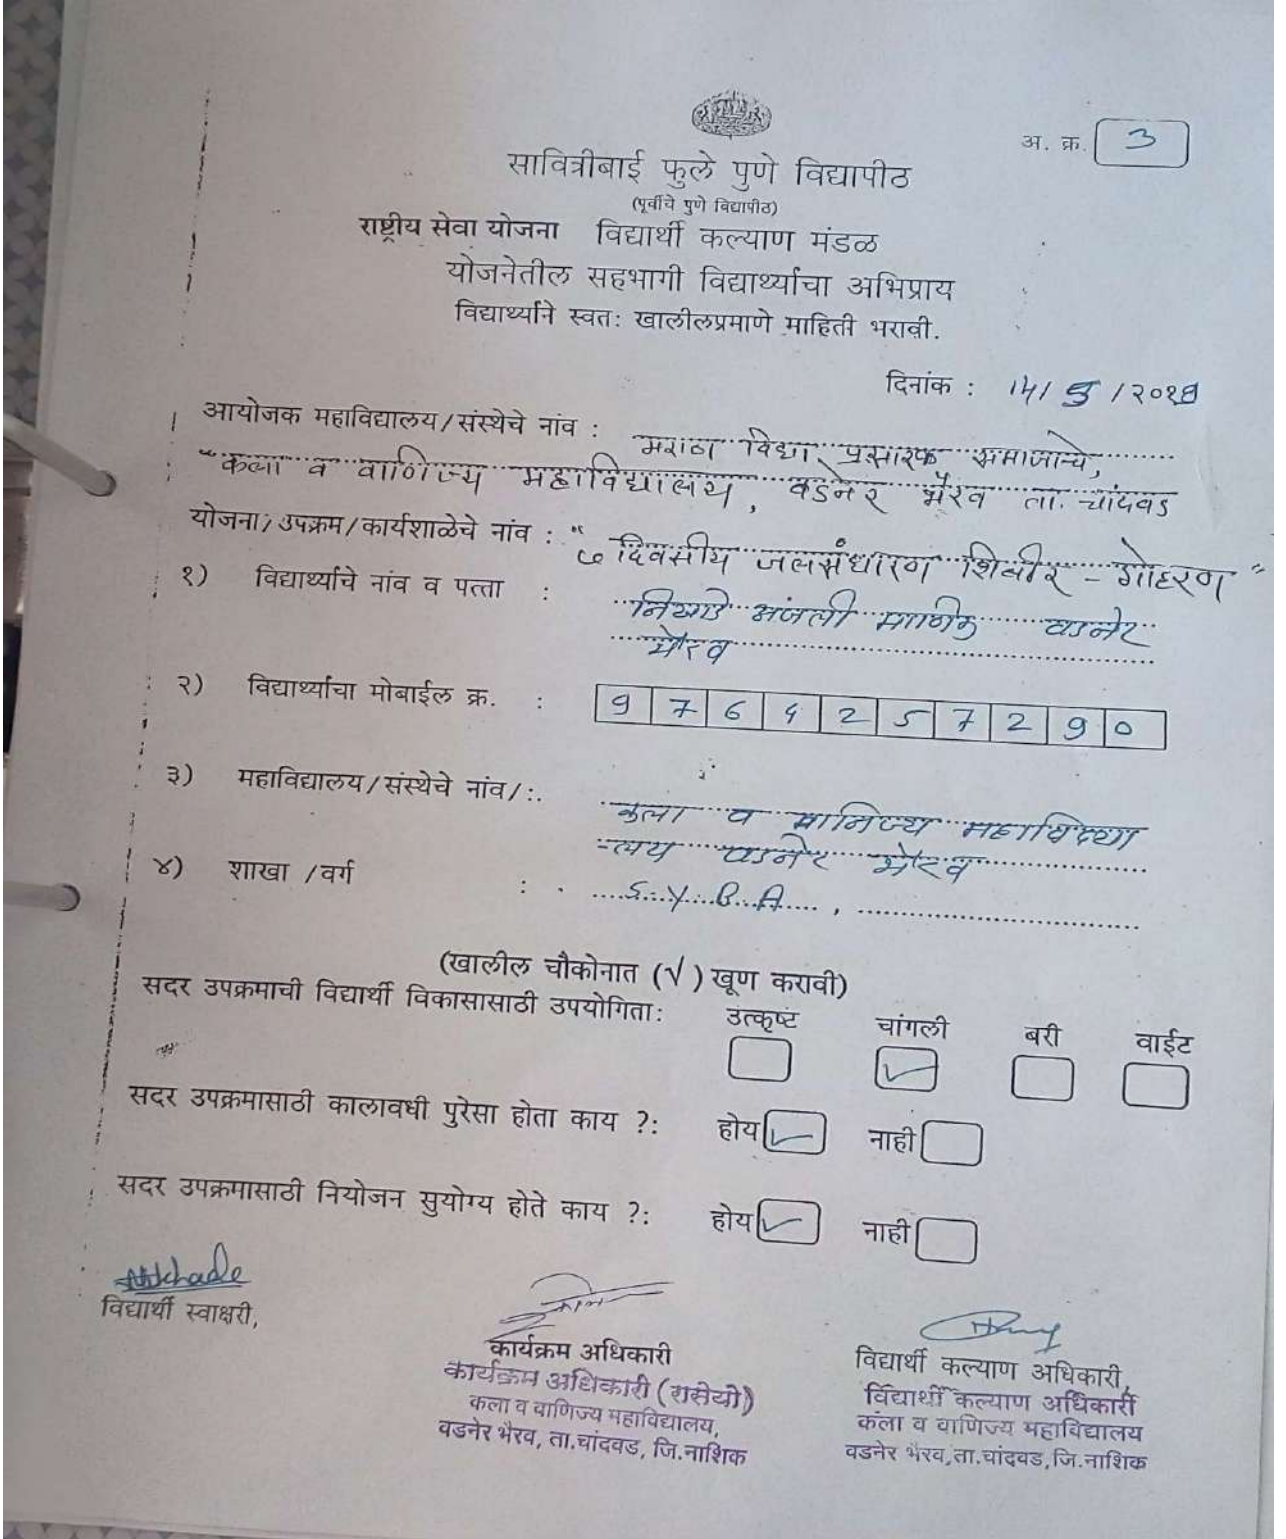 अ. क्र. 3
सावित्रीबाई फुले पुणे विद्यापीठ
(पूर्वीचे पुणे विद्यापीठ)
राष्ट्रीय सेवा योजना विद्यार्थी कल्याण मंडळ
योजनेतील सहभागी विद्यार्थ्यांचा अभिप्राय
विद्यार्थ्याने स्वतः खालीलप्रमाणे माहिती भरावी.
दिनांक :
आयोजक महाविद्यालय/संस्थेचे नांव : मराठा विद्या प्रसारक समाजाचे,
"कला व वाणिज्य महाविद्यालय, वडनेर भैरव ता. चांदवड
योजना/उपक्रम/कार्यशाळेचे नांव : "७ दिवसीय जलसंधारण शिबीर - गोहरण"
१) विद्यार्थ्याचे नांव व पत्ता : निखाडे अंजली माणिक वडनेर
भैरव
२) विद्यार्थ्यांचा मोबाईल क्र. : 9 7 6 4 2 5 7 2 9 0
३) महाविद्यालय/संस्थेचे नांव/:. कला व वानिज्य महाविद्या
-लय वडनेर भैरव
४) शाखा /वर्ग : S.Y.B.A.,
(खालील चौकोनात (√) खूण करावी)
सदर उपक्रमाची विद्यार्थी विकासासाठी उपयोगिता: उत्कृष्ट चांगली बरी वाईट
सदर उपक्रमासाठी कालावधी पुरेसा होता काय ?: होय नाही
सदर उपक्रमासाठी नियोजन सुयोग्य होते काय ?: होय नाही
Nikhade
विद्यार्थी स्वाक्षरी,
कार्यक्रम अधिकारी
कार्यक्रम अधिकारी (रासेयो)
कला व वाणिज्य महाविद्यालय,
वडनेर भैरव, ता.चांदवड, जि.नाशिक
विद्यार्थी कल्याण अधिकारी,
विद्यार्थी कल्याण अधिकारी
कला व वाणिज्य महाविद्यालय
वडनेर भैरव,ता.चांदवड,जि.नाशिक